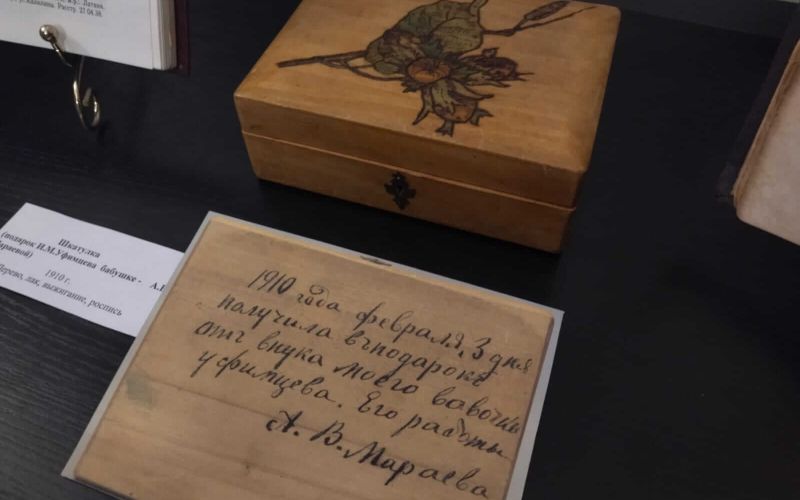 Латвия.
Расстр. 27.04.38.
Шкатулка
(подарок Н.М.Уфимцева бабушке - А.В.
Мараевой)
1910 г.
Дерево, лак, выжигание, роспись
1910 года февраля, 3 дня
получила въ подарокъ
отъ внука моего вавочки
уфимцева. Его работы
А. В. Мараева